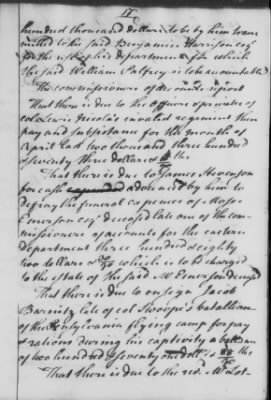 17
hundred thousand dollars to be by him trans
mitted to the said Benjamin Harrison esqr
for the use of his department & for which
the said William Palfrey is to be accountable
The commissioners of accounts report
That there is due to the officers & privates of
col Lewis Nicola's invalid regiment their
pay and subsistance for the month of
April last two thousand three hundred
& seventy three dollars &
That there is due to James Stevenson
for cash expended advanced by him to
defray the funeral expences of Major
Emerson esqr deceased late one of the com
missioners of accounts for the eastern
department three hundred eighty
two dollars & /90 which is to be charged
to the estate of the said Mr Emerson deceased
That there is due to ensign Jacob
Barnitz late of col Swoope's batallion
of the Pensylvania flying camp for pay
& rations during his captivity a ballance
of two hundred & seventy one dollrs &
That there is due to the revd Mr Lot-